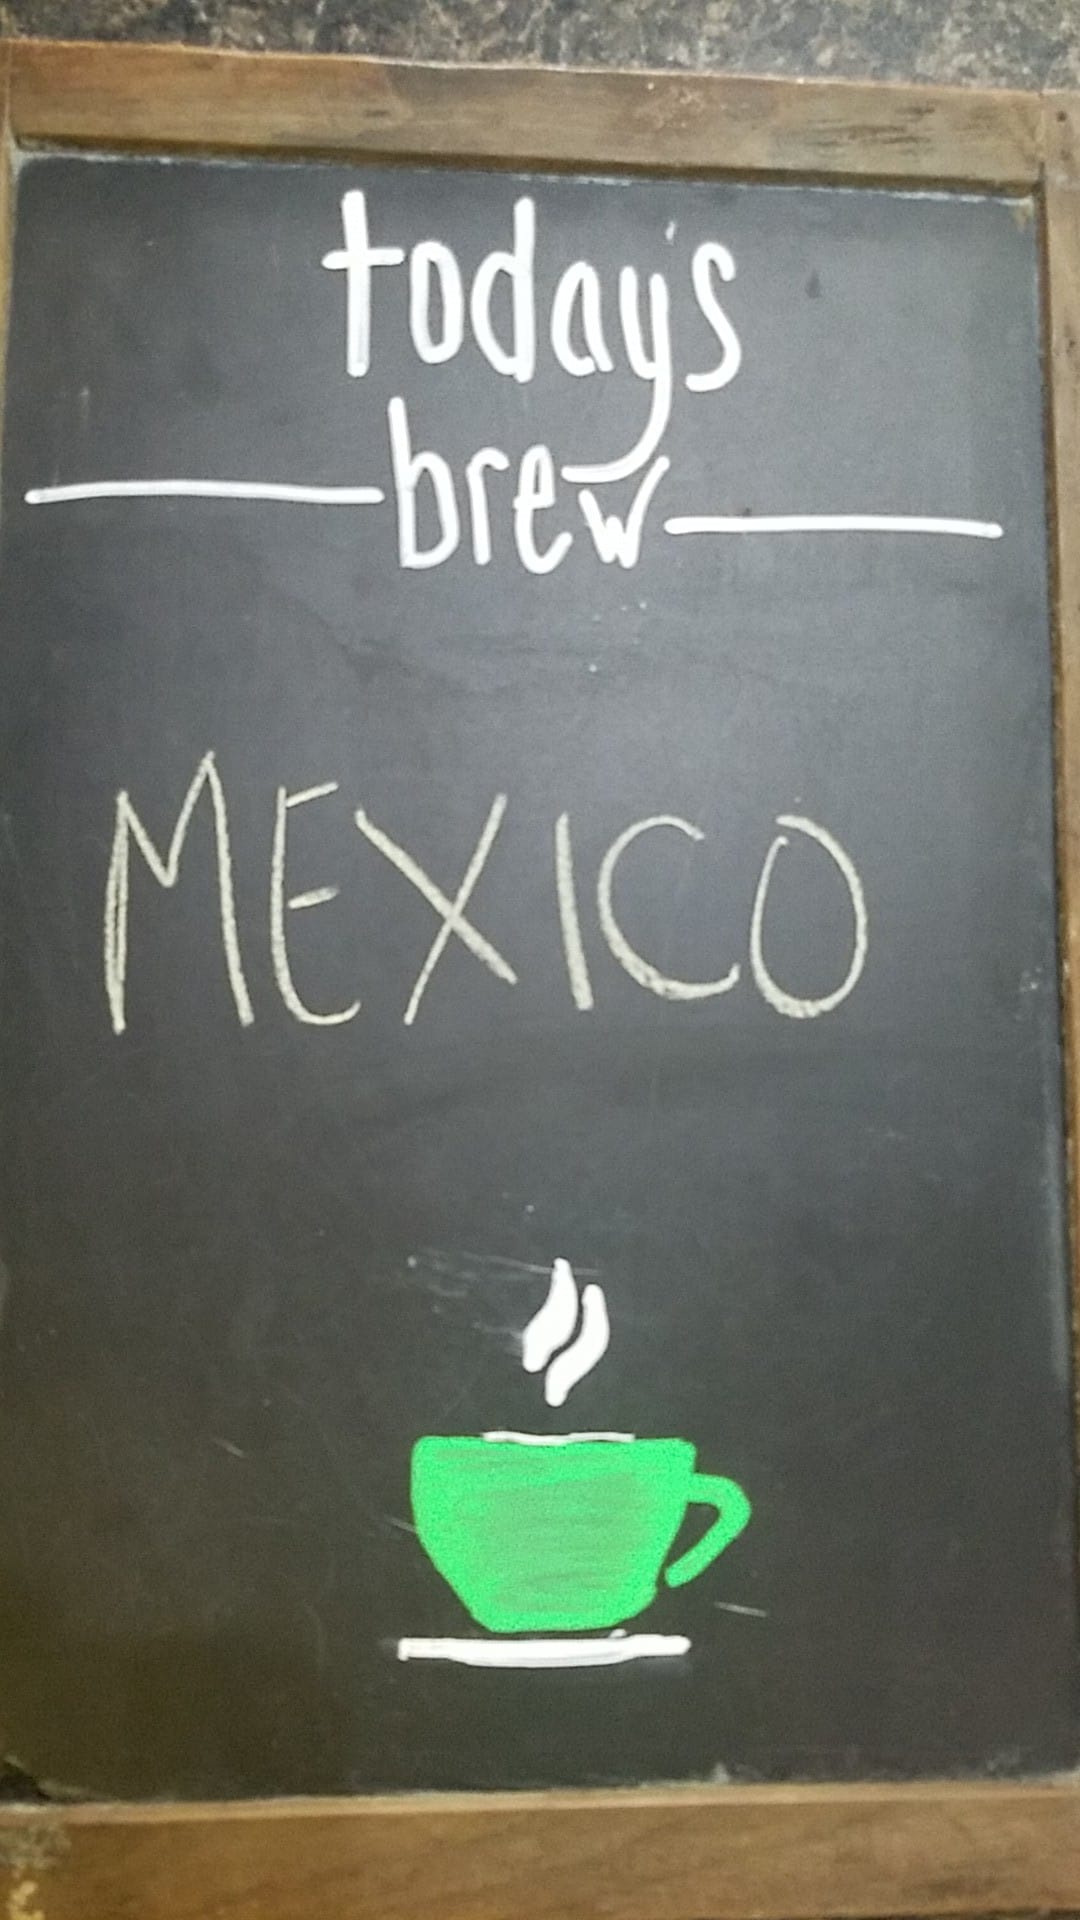 today's
brew
MEXICO